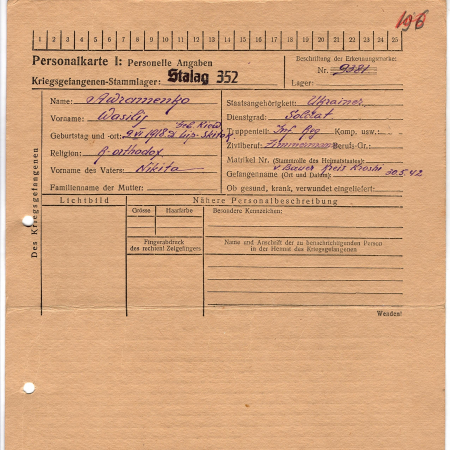 196
1 2 3 4 5 6 7 8 9 10 11 12 13 14 15 16 17 18 19 20 21 22 23 24 25
Personalkarte I: Personelle Angaben
Kriegsgefangenen-Stammlager: Stalag 352
Beschriftung der Erkennungsmarke:
Nr. 9381
Lager:
Des Kriegsgefangenen
Name:
Vorname: Wasilij
Geburtstag und -ort: 1918
Religion: g. orthodox
Vorname des Vaters: Nikita
Familienname der Mutter:
Staatsangehörigkeit: Ukrainer
Dienstgrad: Soldat
Truppenteil: Inf. Reg Komp. usw.:
Zivilberuf: Zimmermann Berufs-Gr.:
Matrikel Nr. (Stammrolle des Heimatstaates):
Gefangennahme (Ort und Datum): Kreis 30.5.42
Ob gesund, krank, verwundet eingeliefert:
Lichtbild
Nähere Personalbeschreibung
Grösse Haarfarbe
Besondere Kennzeichen:
Fingerabdruck
des rechten! Zeigefingers
Name und Anschrift der zu benachrichtigenden Person
in der Heimat des Kriegsgefangenen
Wenden!